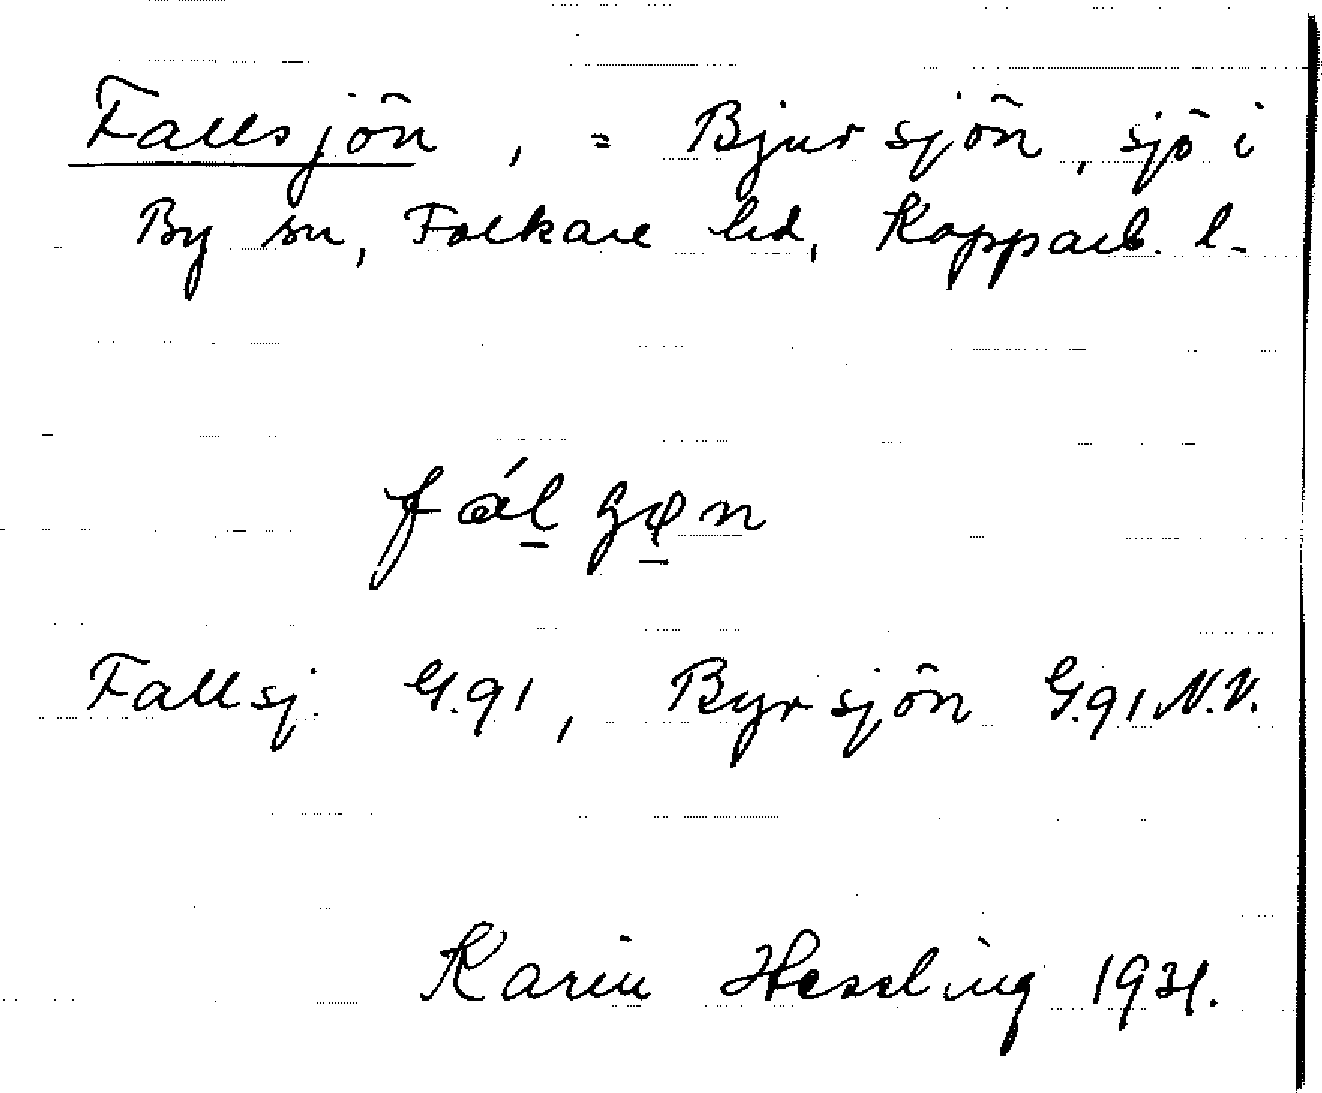 Fallsjön, = Bjursjön, sjö i
By sn, Folkare hd, Kopparb. l.
Fallsj. G.91, Byrsjön G.91 N.V.
Karin Hessling 1931.